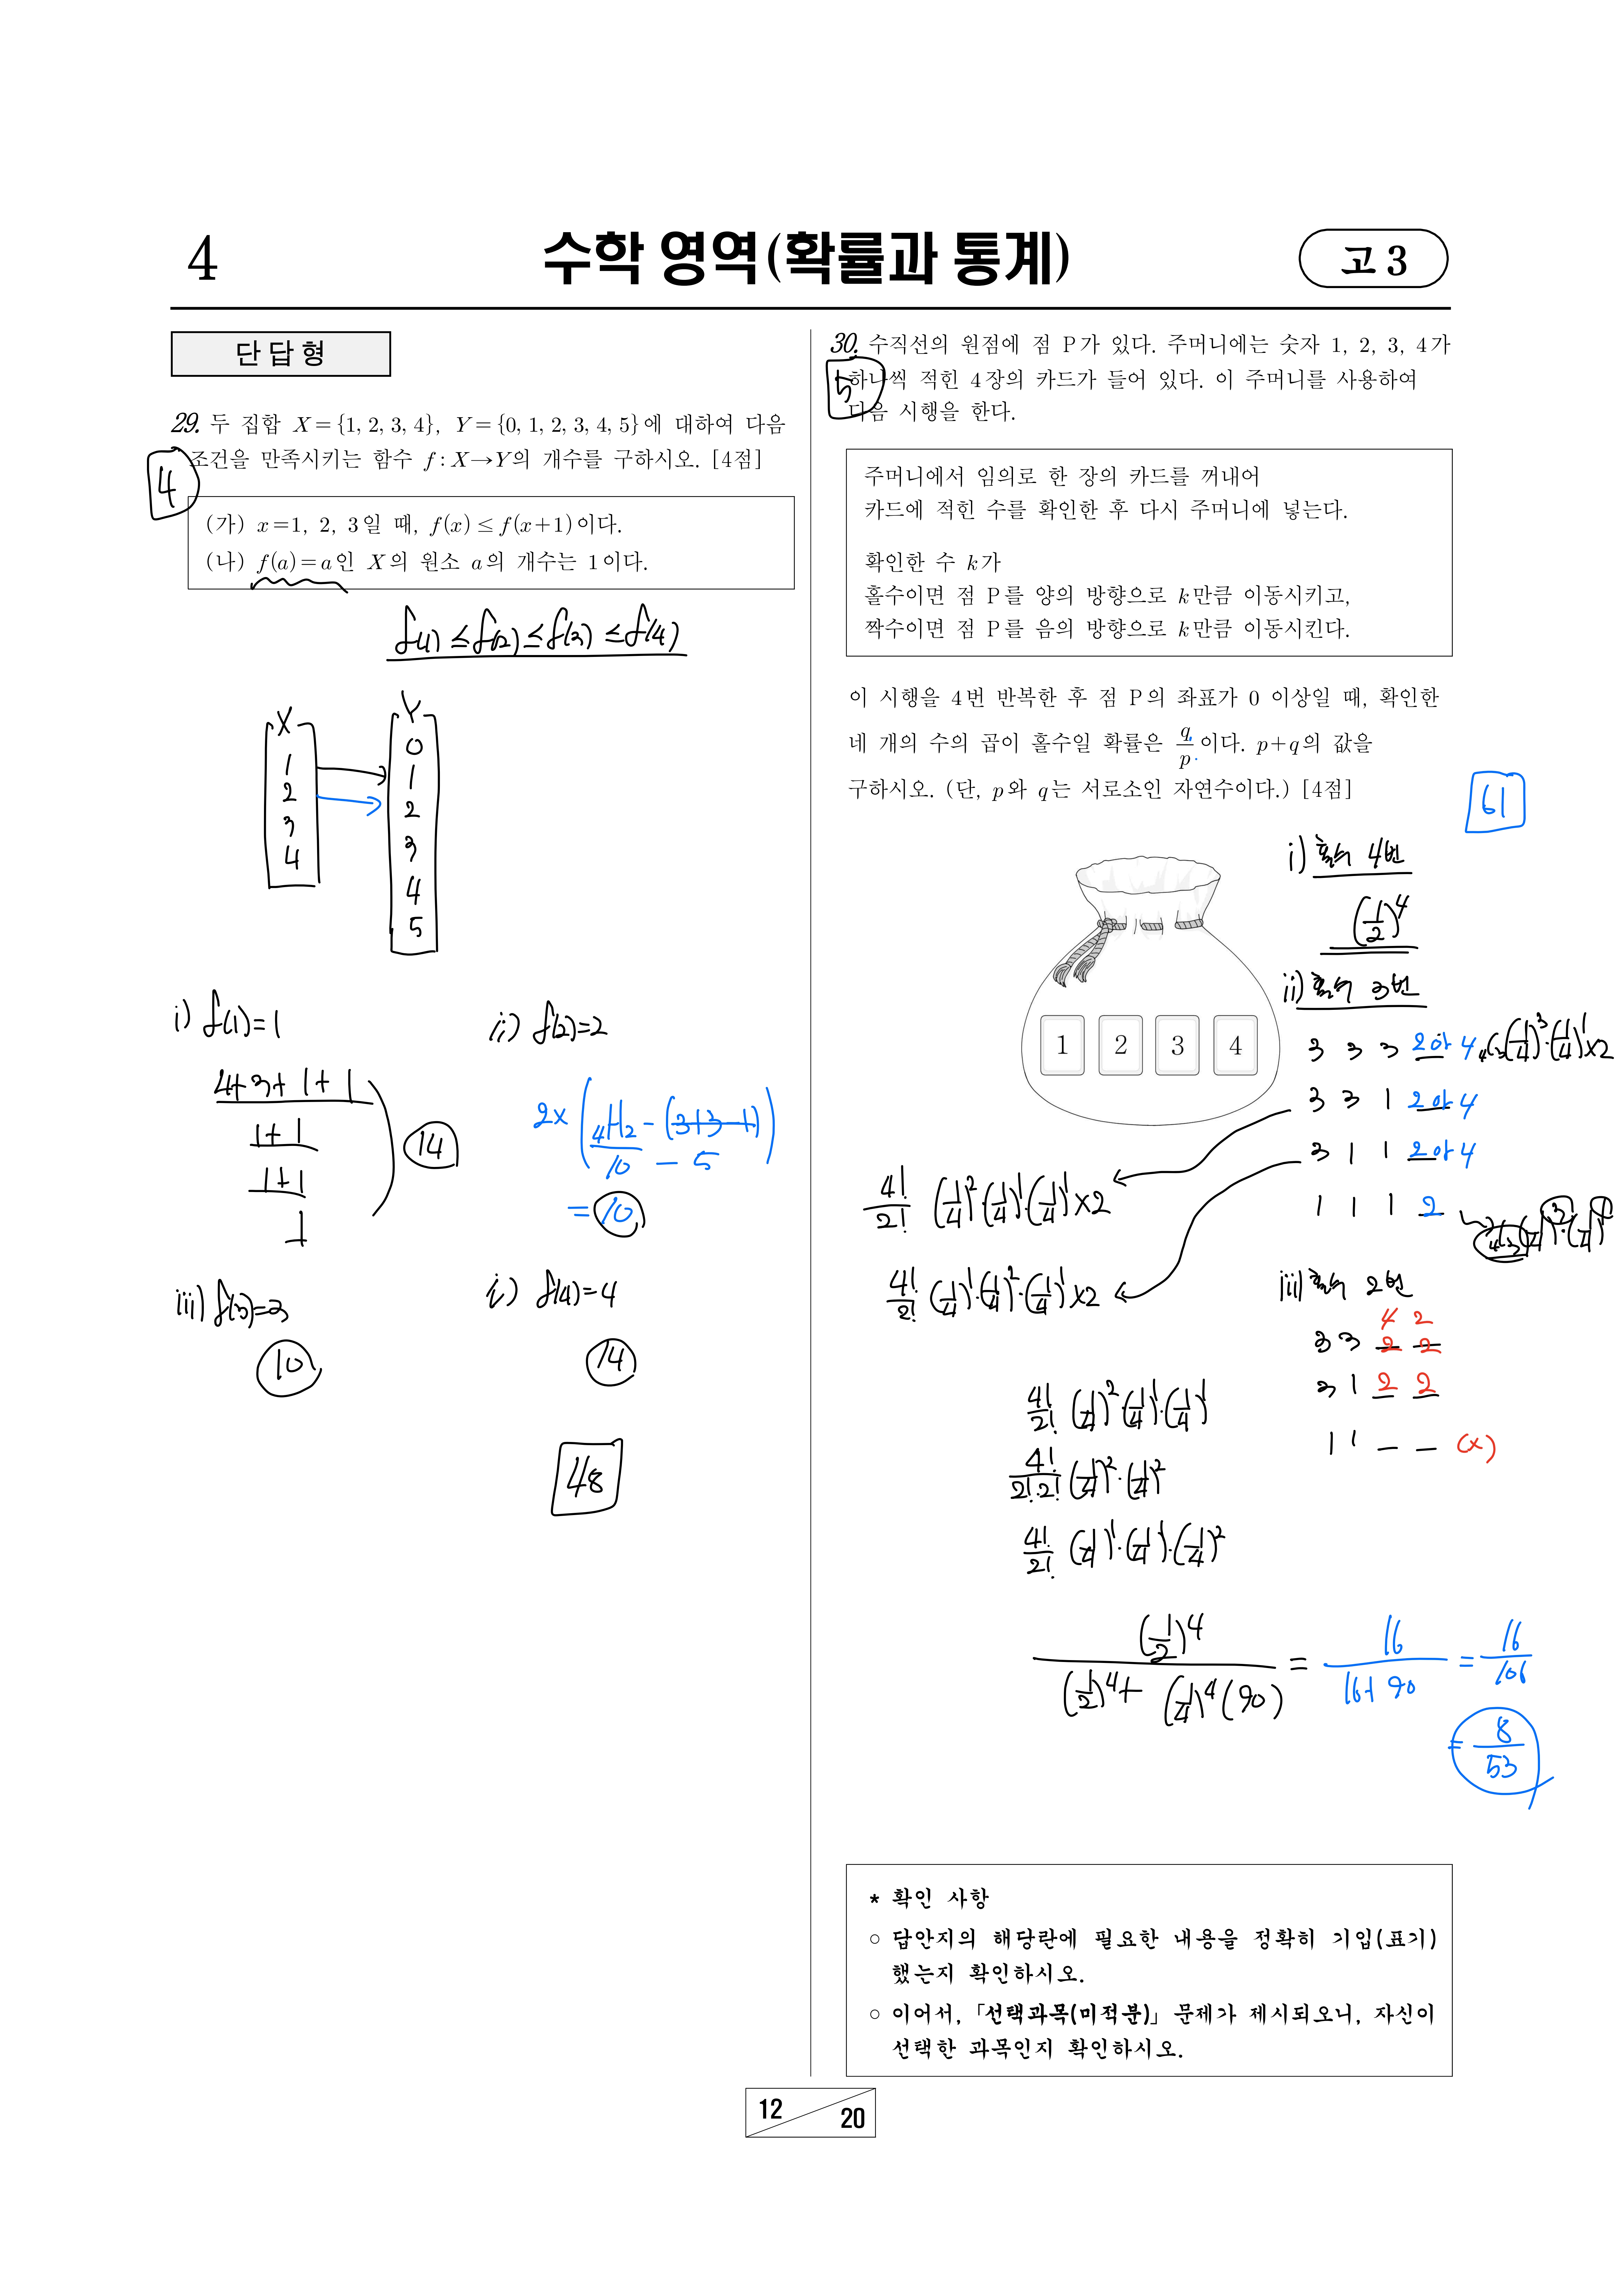 4
수학 영역(확률과 통계)
고 3
단답형
29. 두 집합 X={1, 2, 3, 4}, Y={0, 1, 2, 3, 4, 5}에 대하여 다음
조건을 만족시키는 함수 f : X→Y의 개수를 구하시오. [4점]
4
(가) x=1, 2, 3일 때, f(x) ≤ f(x+1)이다.
(나) f(a)=a인 X의 원소 a의 개수는 1이다.
f(1) ≤ f(2) ≤ f(3) ≤ f(4)
X Y
0
1 1
2 2
3 3
4 4
5
i) f(1)=1
4+3+1+1
1+1
1+1
1
14
ii) f(2)=2
2× (4H2 - (3+3-1))
10 - 5
= 10
iii) f(3)=3
10
i) f(4)=4
14
48
30. 수직선의 원점에 점 P가 있다. 주머니에는 숫자 1, 2, 3, 4가
하나씩 적힌 4장의 카드가 들어 있다. 이 주머니를 사용하여
다음 시행을 한다.
5
주머니에서 임의로 한 장의 카드를 꺼내어
카드에 적힌 수를 확인한 후 다시 주머니에 넣는다.
확인한 수 k가
홀수이면 점 P를 양의 방향으로 k만큼 이동시키고,
짝수이면 점 P를 음의 방향으로 k만큼 이동시킨다.
이 시행을 4번 반복한 후 점 P의 좌표가 0 이상일 때, 확인한
네 개의 수의 곱이 홀수일 확률은 q/p 이다. p+q의 값을
구하시오. (단, p와 q는 서로소인 자연수이다.) [4점]
61
1 2 3 4
i) 홀수 4번
(1/2)^4
ii) 홀수 3번
3 3 3 2아4 4C3(1/4)^3·(1/4)^1×2
3 3 1 2아4
3 1 1 2아4
1 1 1 2
4!/2! (1/4)^2·(1/4)^1·(1/4)^1×2
4!/2! (1/4)^1·(1/4)^2·(1/4)^1×2
iii) 홀수 2번
4 2
3 3 2 2
3 1 2 2
1 1 _ _ (×)
4!/2! (1/4)^2·(1/4)^1·(1/4)^1
4!/2!·2! (1/4)^2·(1/4)^2
4!/2! (1/4)^1·(1/4)^1·(1/4)^2
(1/2)^4 / (1/2)^4+(1/4)^4(90) = 16/16+90 = 16/106
= 8/53
* 확인 사항
○ 답안지의 해당란에 필요한 내용을 정확히 기입(표기)
했는지 확인하시오.
○ 이어서, 「선택과목(미적분)」 문제가 제시되오니, 자신이
선택한 과목인지 확인하시오.
12 20